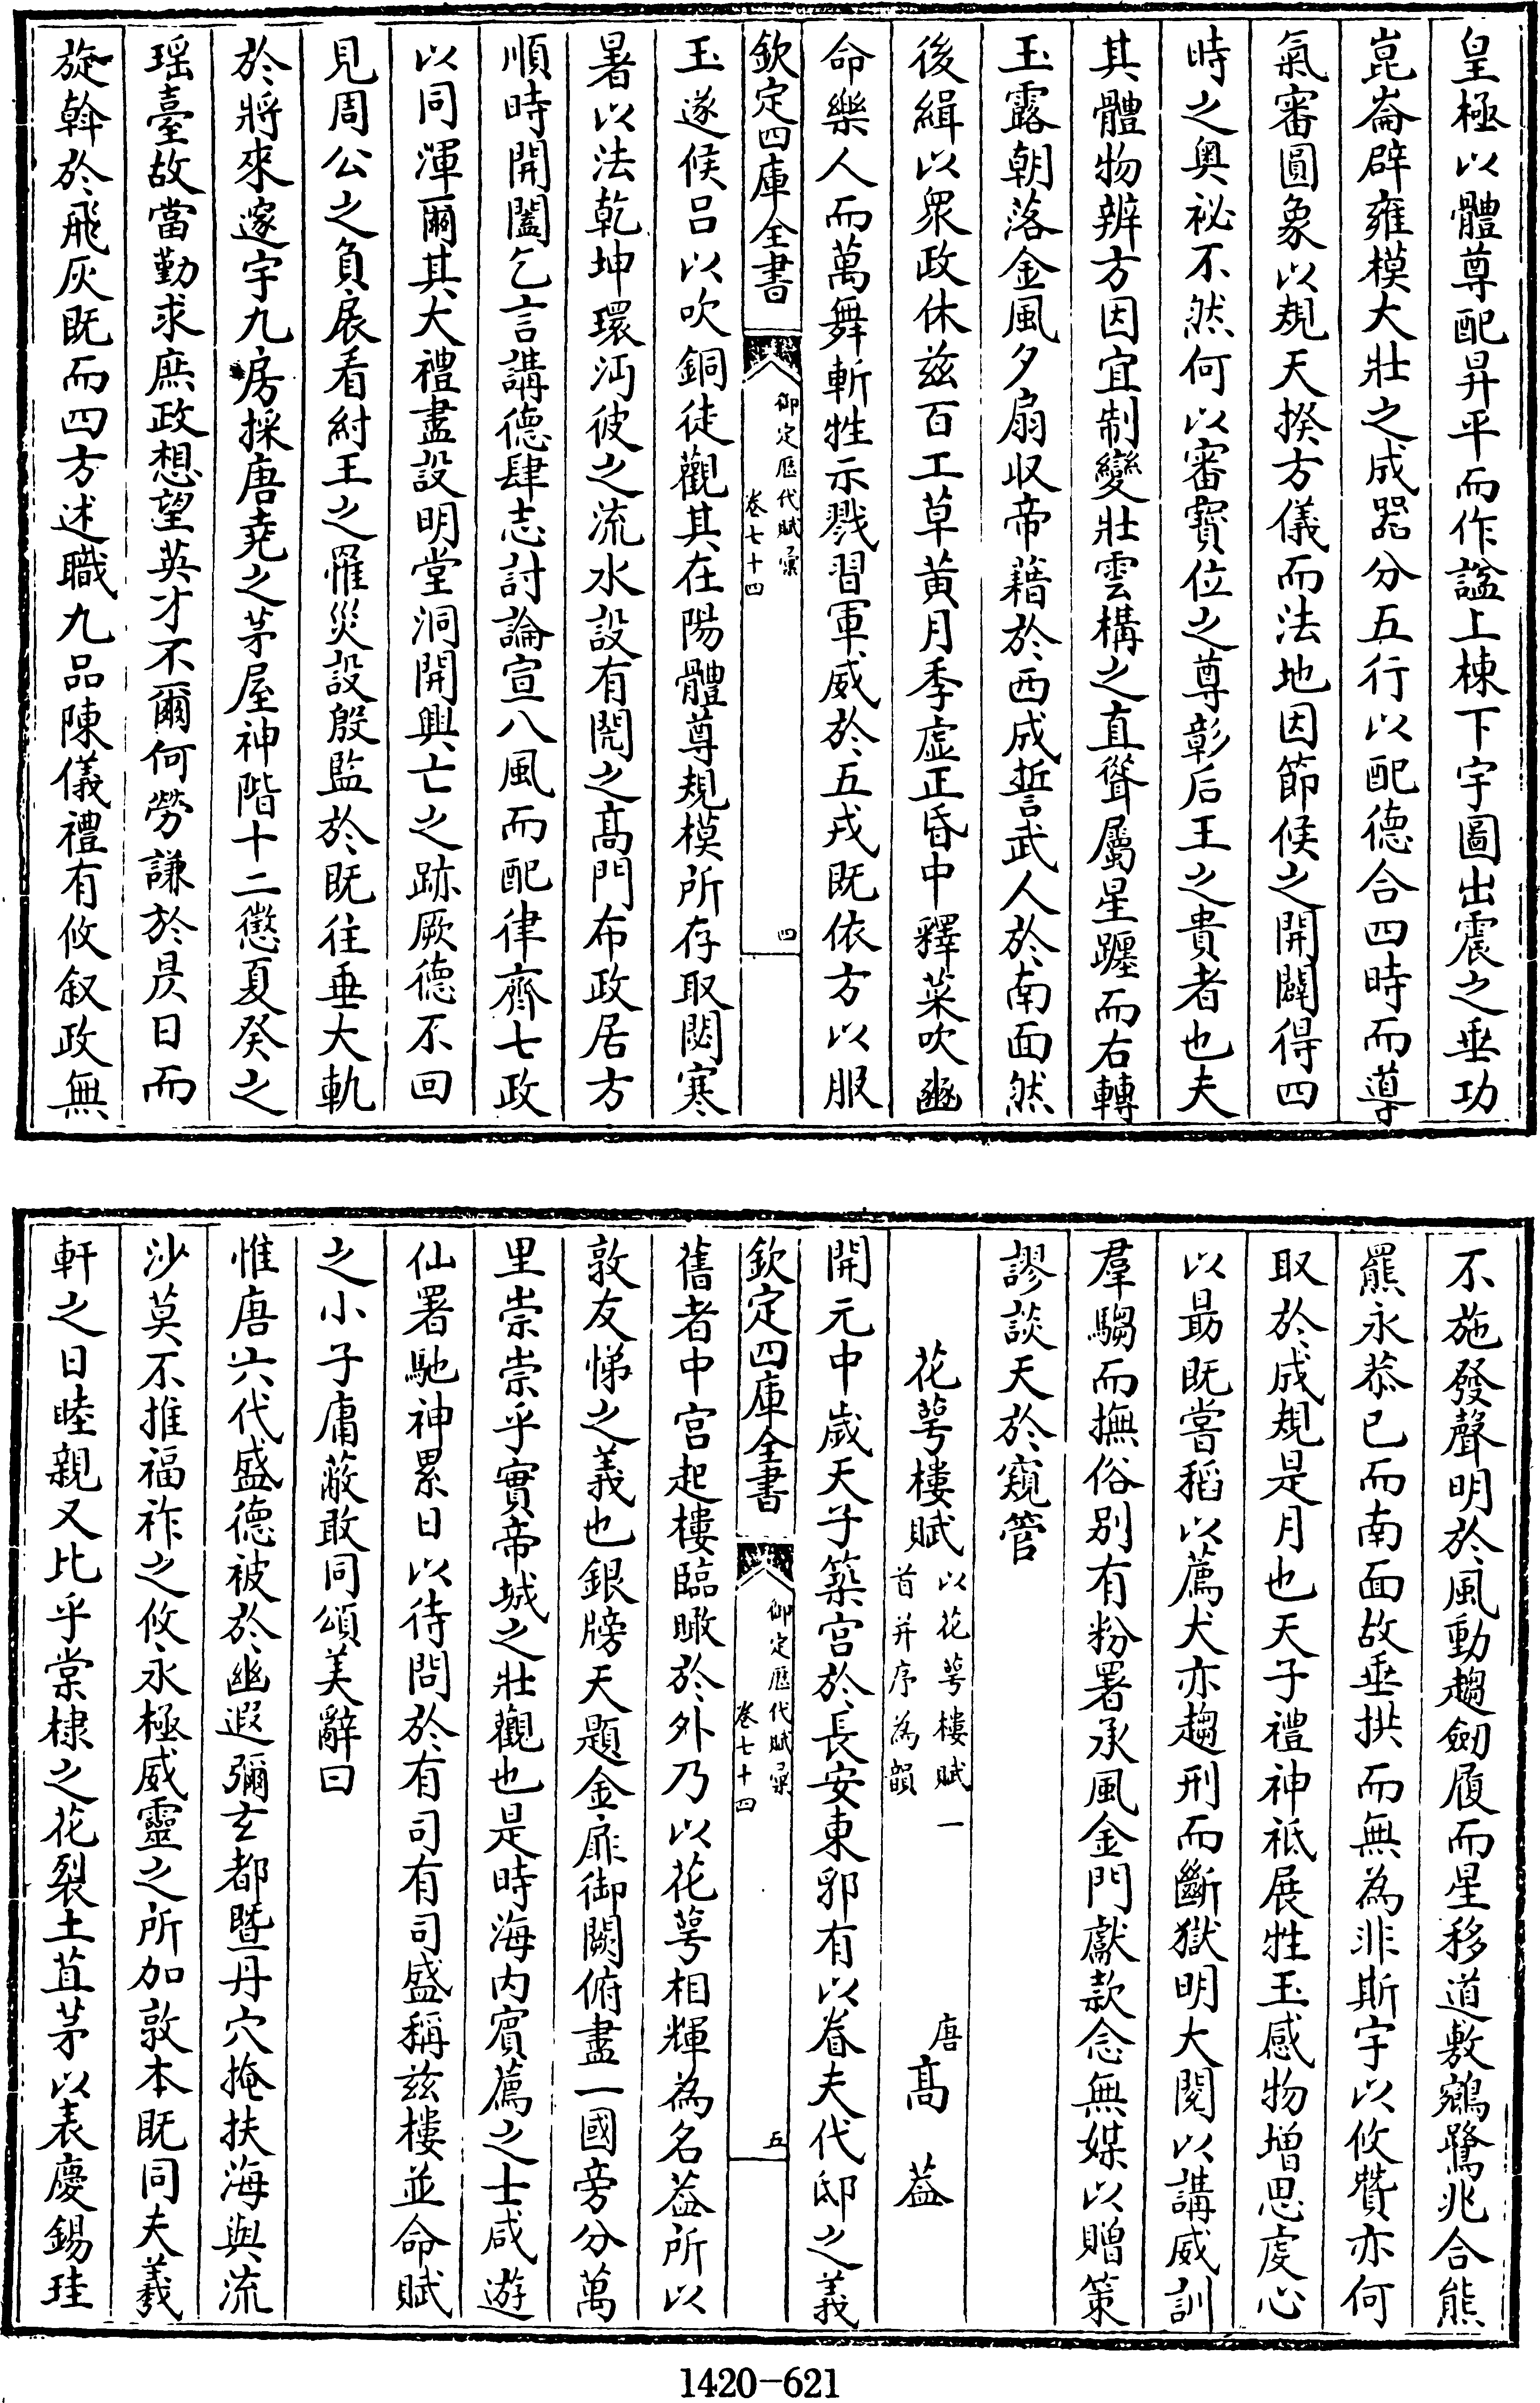 皇極以體尊配昇平而作謐上棟下宇圖出震之垂功
崑崙辟雍模大壯之成器分五行以配德合四時而導
氣審圓象以規天揆方儀而法地因節候之開闢得四
時之奥祕不然何以審寳位之尊彰后王之貴者也夫
其體物辨方因宜制變壯雲構之直聳屬星躔而右轉
玉露朝落金風夕扇収帝藉於西成誓武人於南面然
後緝以衆政休兹百工草黄月季虚正昏中釋菜吹豳
命樂人而萬舞斬牲示戮習軍威於五戎既依方以服
欽定四庫全書
御定歴代賦彙
卷七十四
四
玉遂候吕以吹銅徒觀其在陽體尊規模所存取閟寒
暑以法乾坤環沔彼之流水設有閌之髙門布政居方
順時開闔乞言講德肆志討論宣八風而配律齊七政
以同渾爾其大禮盡設明堂洞開興亡之跡厥德不回
見周公之負扆看紂王之罹災設殷監於既往垂大軌
於將來邃宇九房採唐堯之茅屋神階十二懲夏癸之
瑶臺故當勤求庶政想望英才不爾何勞謙於昃日而
旋斡於飛灰既而四方述職九品陳儀禮有攸叙政無
不施發聲明於風動趨劒履而星移道敷鵷鷺兆合熊
羆永恭已而南面故垂拱而無為非斯宇以攸贊亦何
取於成規是月也天子禮神祗展牲玉感物増思虔心
以勗既嘗稻以薦犬亦趨刑而斷獄明大閱以講威訓
羣騶而撫俗别有粉署承風金門獻款念無媒以贈策
謬談天於窺管
花萼樓賦
以花萼樓賦一
首并序為韻
唐
髙葢
開元中歲天子築宫於長安東郛有以眷夫代邸之義
欽定四庫全書
御定歴代賦彙
卷七十四
五
舊者中宫起樓臨瞰於外乃以花萼相輝為名葢所以
敦友悌之義也銀牓天題金扉御闕俯盡一國旁分萬
里崇崇乎實帝城之壯觀也是時海内賓薦之士咸遊
仙署馳神累日以待問於有司有司盛稱兹樓並命賦
之小子庸蔽敢同頌美辭曰
惟唐六代盛德被於幽遐彌玄都暨丹穴掩扶海與流
沙莫不推福祚之攸永極威靈之所加敦本既同夫羲
軒之日睦親又比乎棠棣之花裂土苴茅以表慶錫珪
1420-621